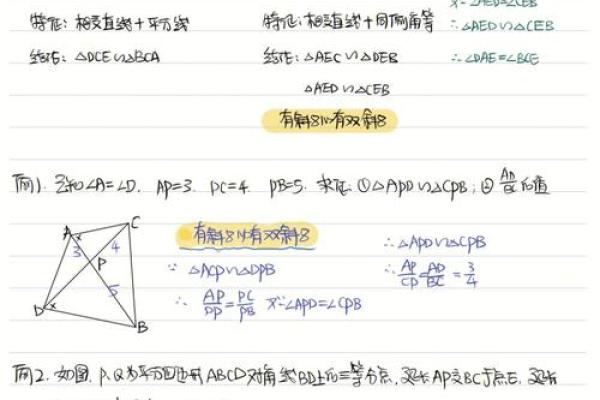 ∵∠AED=∠CEB
特征:相交直线+平行线
特征:相交直线+同侧角等
∴△AED∽△CEB
结论:△DCE∽△BCA
结论:△AEC∽△DEB
∴∠DAE=∠BCE
△AED∽△CEB
有斜8必有双斜8
例1. 已知∠A=∠D. AP=3. PC=4 PB=5. 求证:①△APD∽△CPB;② AD/BC的值
A
C
3
4
P
5
D
B
有斜8必有双斜8
∵ △ACP∽△DPB
∴ AP/DP=PC/PB 又∵∠APD=∠CPB
∴△APD∽△CPB
∴AP/CP=AD/BC=3/4
例2. 如图. P、Q为平行四边形ABCD对角线BD上的三等分点,延长AP交BC于点E,延长